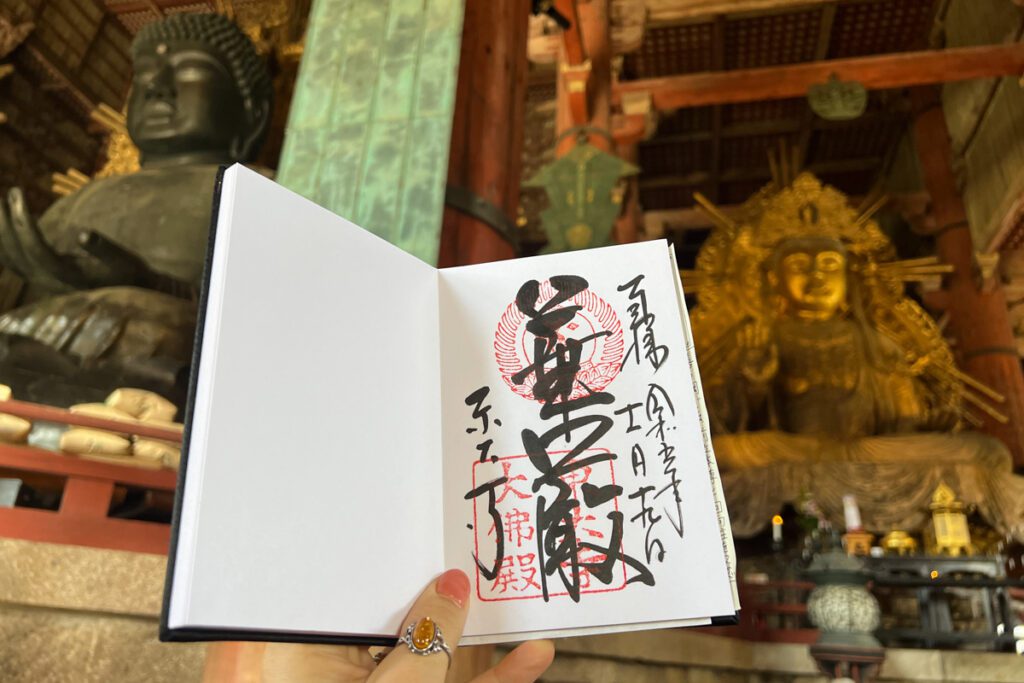 奉拝
令和五年
十一月十九日
華嚴
東大寺
東大寺
大佛殿